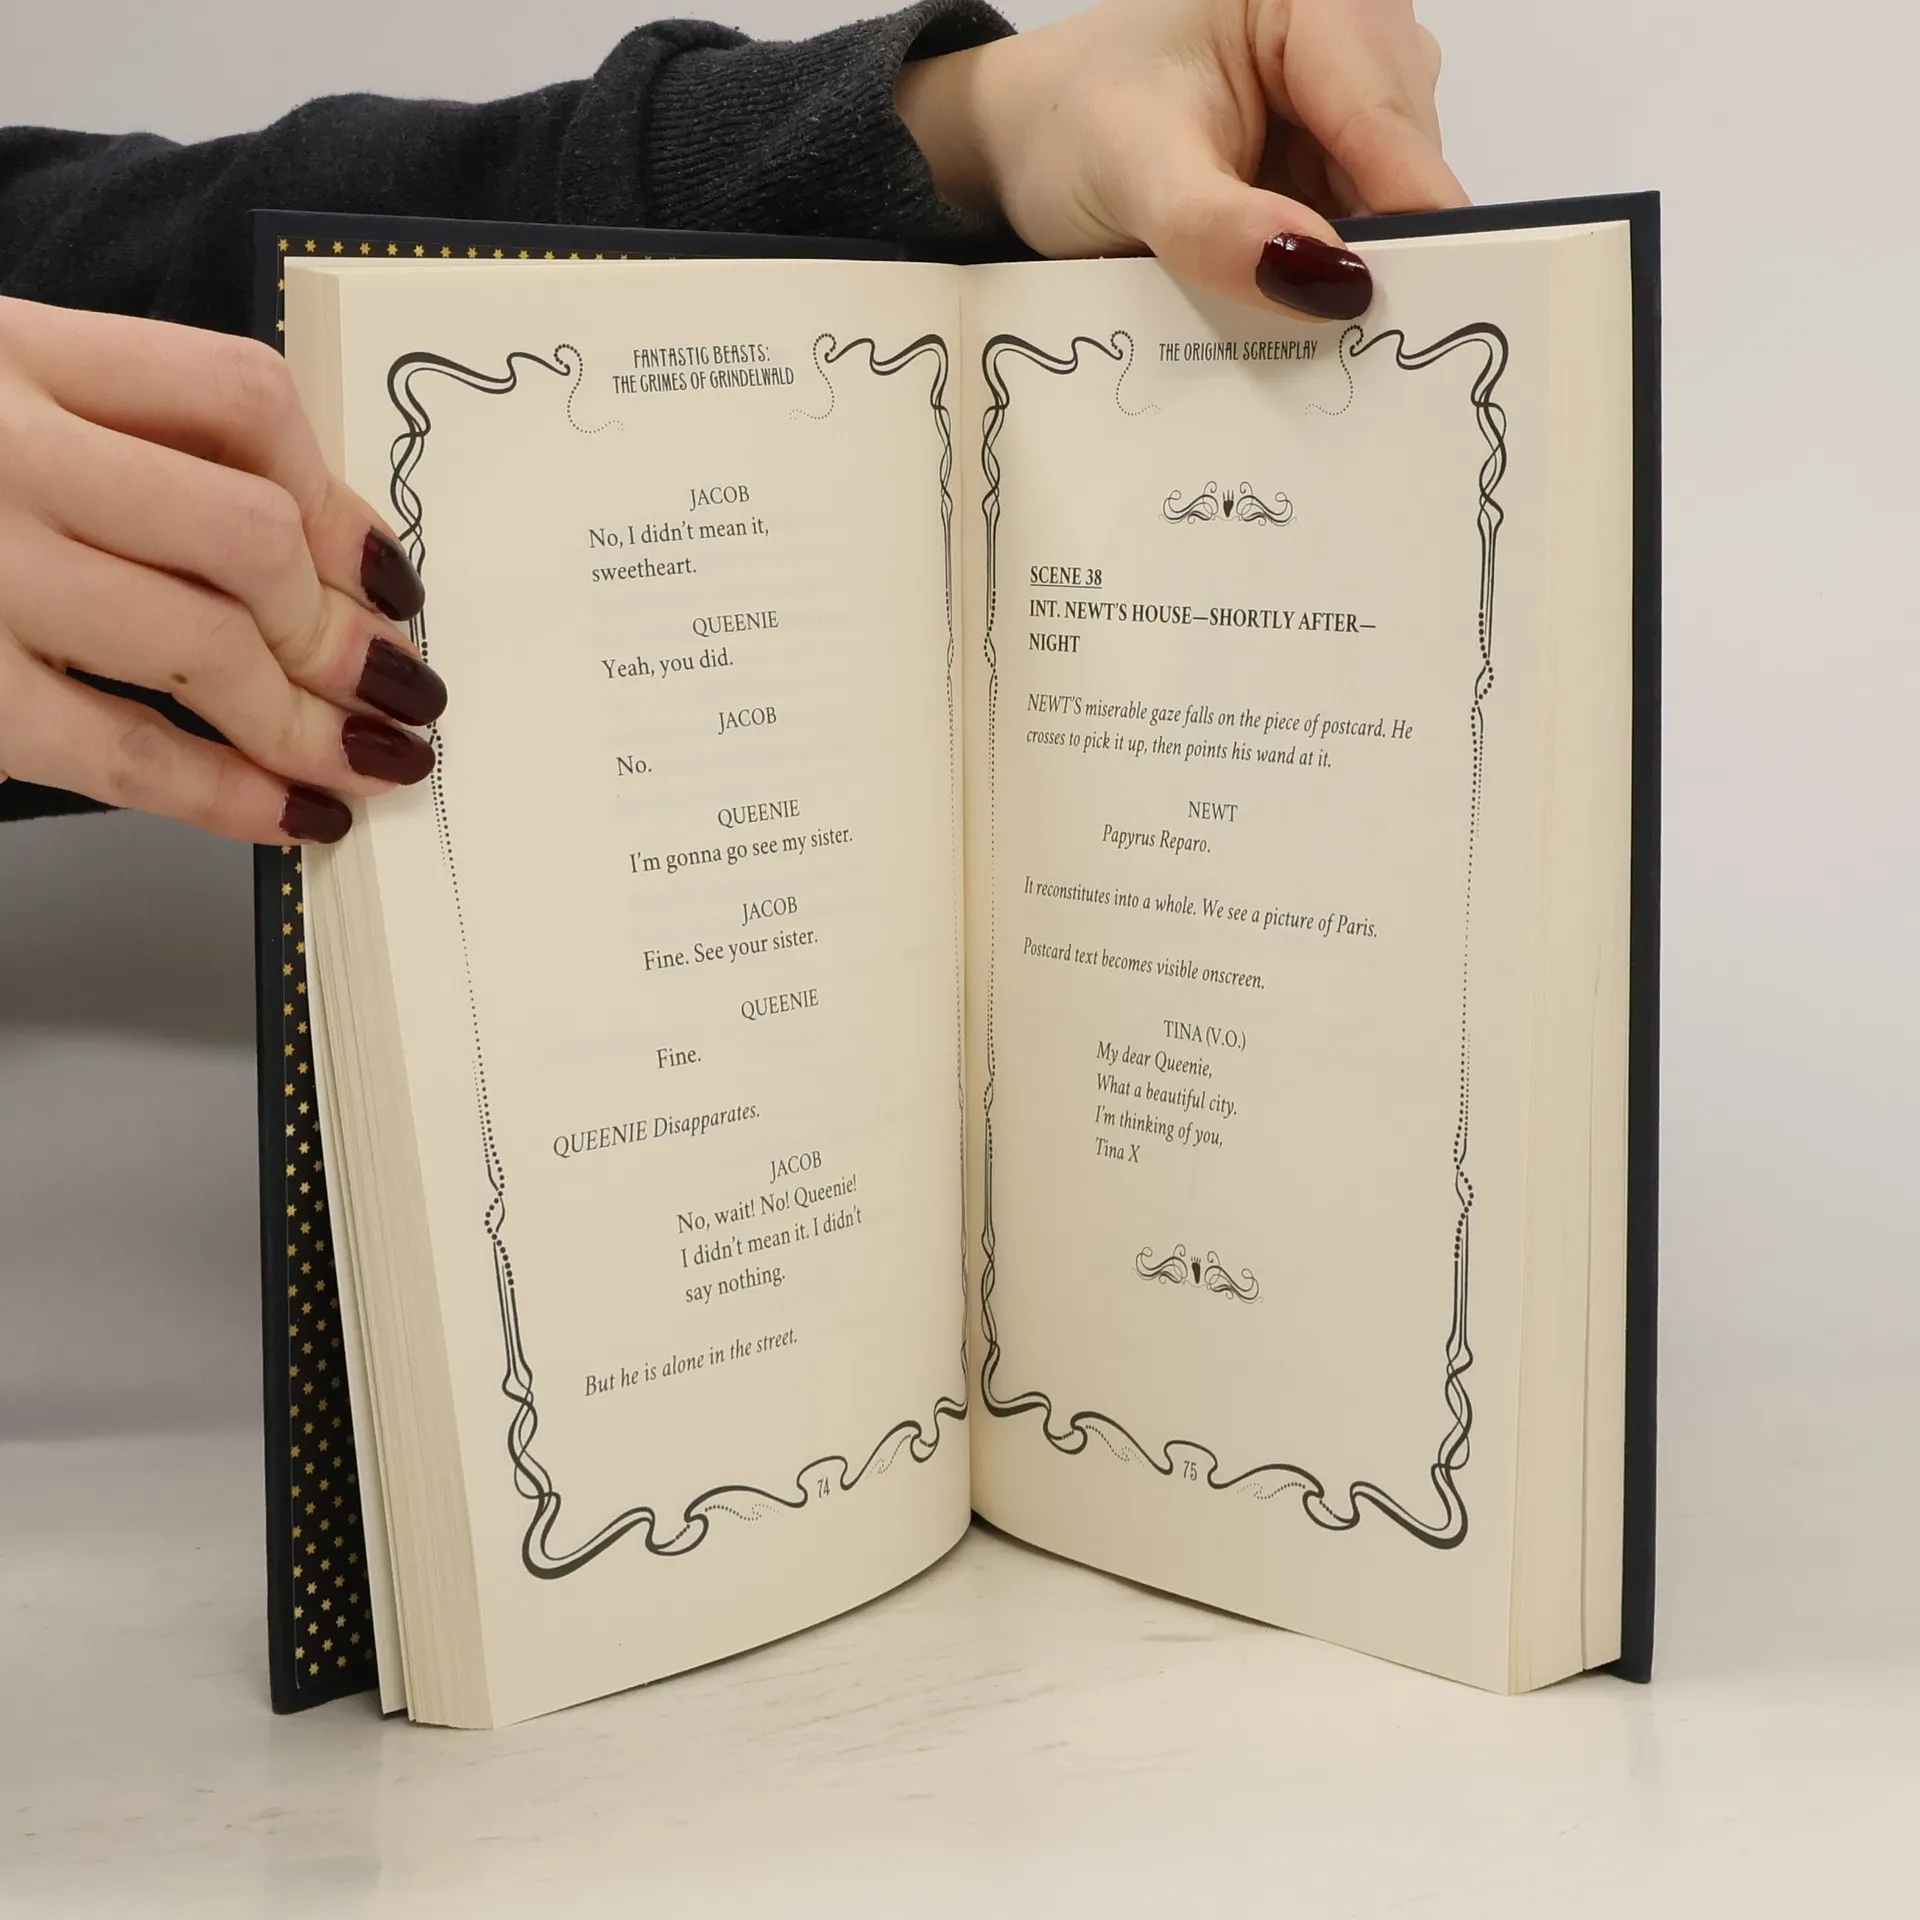 FANTASTIC BEASTS:
THE CRIMES OF GRINDELWALD
JACOB
No, I didn't mean it,
sweetheart.
QUEENIE
Yeah, you did.
JACOB
No.
QUEENIE
I'm gonna go see my sister.
JACOB
Fine. See your sister.
QUEENIE
Fine.
QUEENIE Disapparates.
JACOB
No, wait! No! Queenie!
I didn't mean it. I didn't
say nothing.
But he is alone in the street.
74
THE ORIGINAL SCREENPLAY
SCENE 38
INT. NEWT'S HOUSE—SHORTLY AFTER—
NIGHT
NEWT'S miserable gaze falls on the piece of postcard. He
crosses to pick it up, then points his wand at it.
NEWT
Papyrus Reparo.
It reconstitutes into a whole. We see a picture of Paris.
Postcard text becomes visible onscreen.
TINA (V.O.)
My dear Queenie,
What a beautiful city.
I'm thinking of you,
Tina X
75